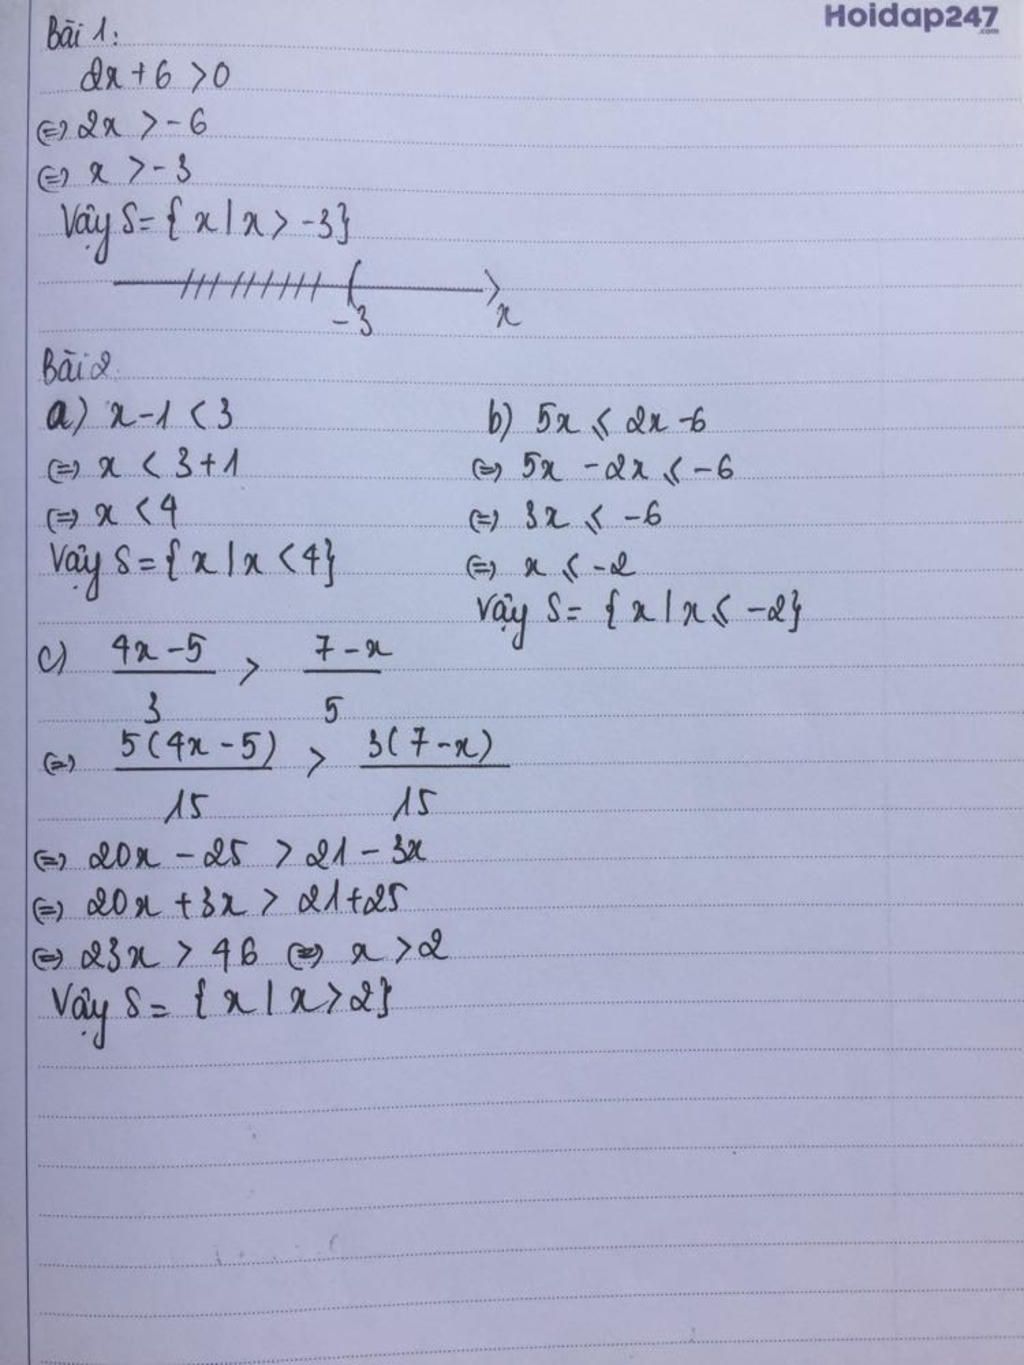 Hoidap247
.com
Bài 1:
2x + 6 > 0
⇔ 2x > -6
⇔ x > -3
Vậy S = { x | x > -3}
-3 x
Bài 2.
a) x - 1 < 3
⇔ x < 3 + 1
⇔ x < 4
Vậy S = { x | x < 4}
b) 5x ≤ 2x - 6
⇔ 5x - 2x ≤ -6
⇔ 3x ≤ -6
⇔ x ≤ -2
Vậy S = { x | x ≤ -2}
c) (4x - 5)/3 > (7 - x)/5
⇔ 5(4x - 5)/15 > 3(7 - x)/15
⇔ 20x - 25 > 21 - 3x
⇔ 20x + 3x > 21 + 25
⇔ 23x > 46 ⇔ x > 2
Vậy S = { x | x > 2}